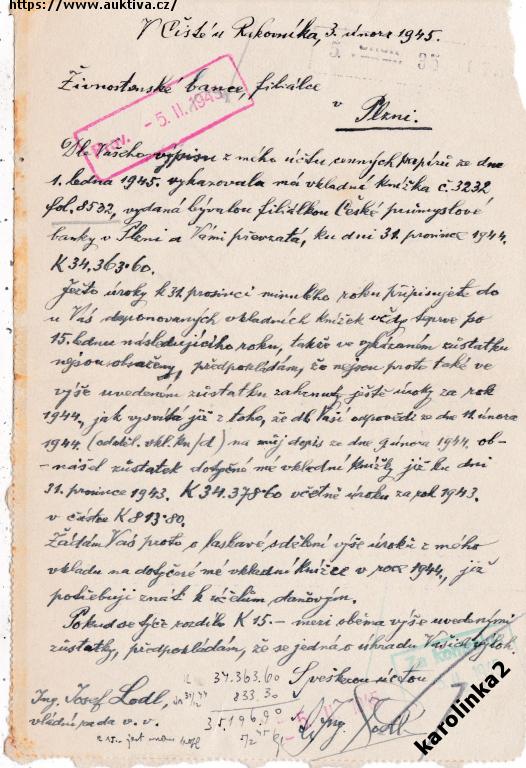 https://www.auktiva.cz/
V Čisté u Rakovníka, 3. února 1945.
Živnostenské bance, filiálce
v
Plzni.
- 5. II. 1945
Dle Vašeho výpisu z mého účtu cenných papírů ze dne
1. ledna 1945. vykazovala má vkladní knížka č. 3232
fol. 8532, vydaná bývalou filiálkou České průmyslové
banky v Plzni a Vámi převzatá, ku dni 31. prosince 1944.
K 34.363·60.
Ježto úroky k 31. prosinci minulého roku připisujete do
u Vás deponovaných vkladních knížek vždy teprve po
15. lednu následujícího roku, takže ve vykázaném zůstatku
nejsou obsaženy, předpokládám, že nejsou proto také ve
výše uvedeném zůstatku zahrnuty ještě úroky za rok
1944., jak vysvítá již z toho, že dle Vaší odpovědi ze dne 11. února
1944. (odděl. vkl. kn/d) na můj dopis ze dne 9. února 1944. ob-
-nášel zůstatek dotyčné mé vkladní knížky již ku dni
31. prosince 1943. K 34.378·60 včetně úroku za rok 1943.
v částce K 813·80.
Žádám Vás proto o laskavé sdělení výše úroků z mého
vkladu na dotyčné mé vkladní knížce v roce 1944., jež
potřebuji znát k účelům daňovým.
Pokud se týče rozdílu K 15.- mezi oběma výše uvedenými
zůstatky, předpokládám, že se jedná o úhradu Vašich výloh.
34.363.60
S veškerou úctou
Ing. Josef Lodl,
833.30
vládní rada v. v.
35.196.90
Ing. Lodl
karolinka2